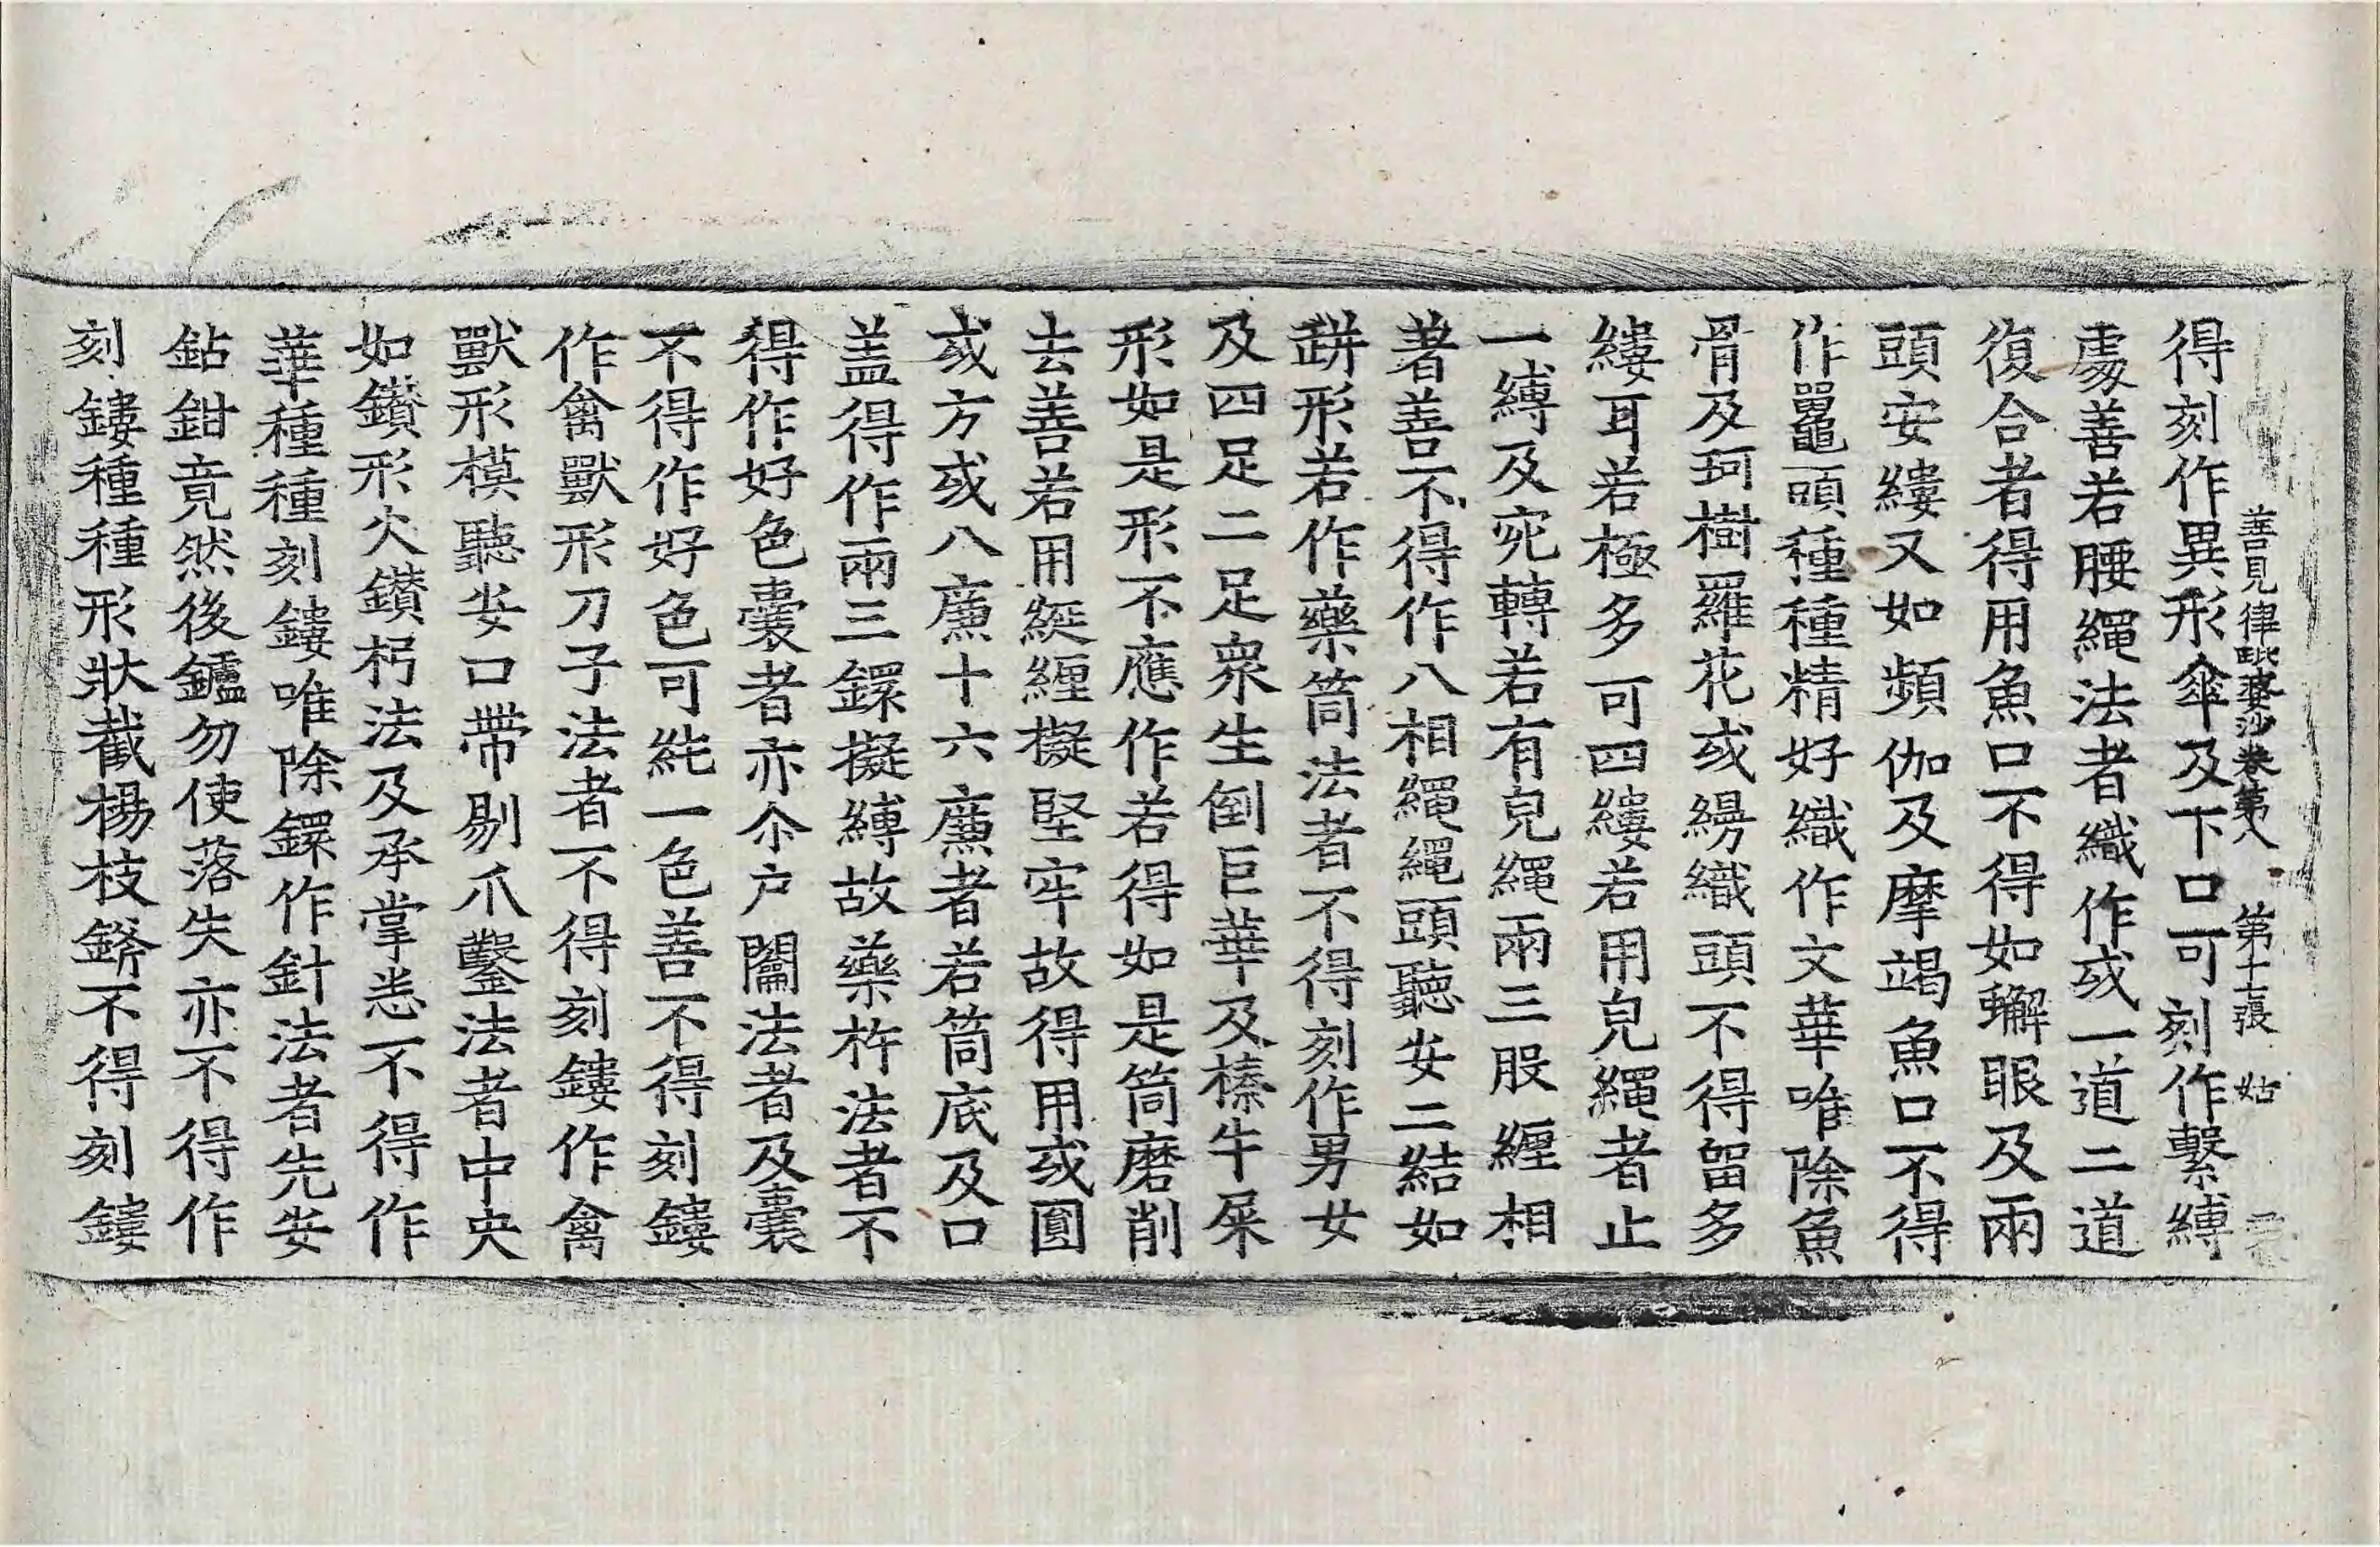 善見律毗婆沙卷第八 第十七張 姑
得刻作異形傘及下口可刻作繫縛
處善若腰繩法者織作或一道二道
復合者得用魚口不得如蠏眼及兩
頭安縷又如頻伽及摩竭魚口不得
作鼉頭種種精好織作文華唯除魚
骨及珂樹羅花或縵織頭不得留多
縷耳若極多可四縷若用皃繩者止
一縛及宛轉若有皃繩兩三股纏相
著善不得作八相繩繩頭聽安二結如
缾形若作藥筒法者不得刻作男女
及四足二足衆生倒巨華及榛牛屎
形如是形不應作若得如是筒磨削
去善若用綖纏擬堅牢故得用或圎
或方或八廉十六廉者若筒底及口
盖得作兩三鐶擬縛故藥杵法者不
得作好色囊者亦尒户闟法者及囊
不得作好色可紕一色善不得刻鏤
作禽獸形刀子法者不得刻鏤作禽
獸形模聽安口帶剔爪鑿法者中央
如鑚形火鑚杇法及承掌悉不得作
華種種刻鏤唯除鐶作針法者先安
鉆鉗竟然後鑪勿使落失亦不得作
刻鏤種種形狀截楊枝鏘不得刻鏤